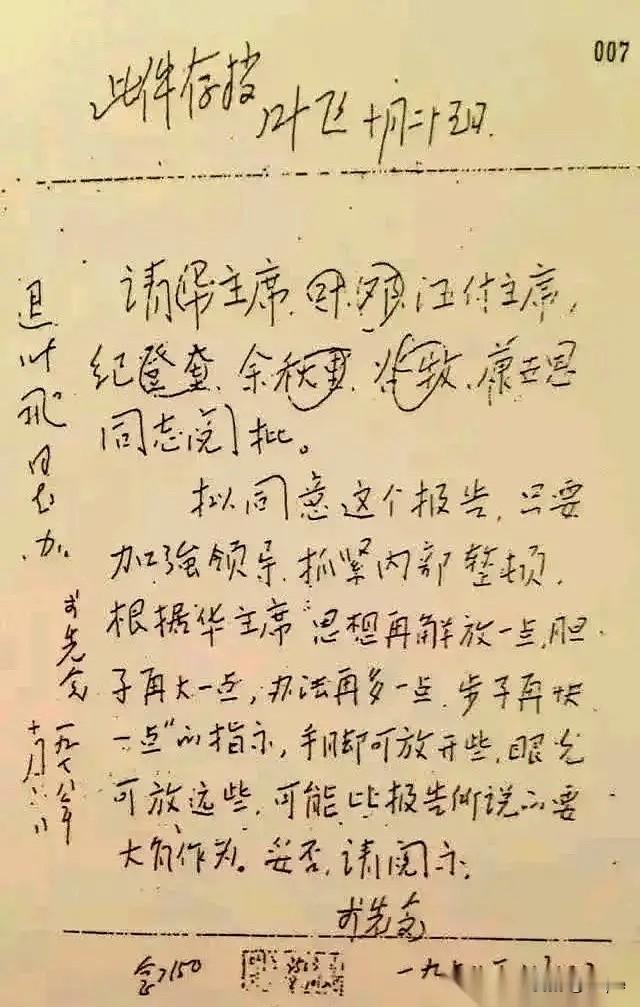 007
此件存档
叶飞 十月二十五日
请华主席、叶、邓、汪付主席、
纪登奎、余秋里、谷牧、康世恩
同志阅批。
拟同意这个报告,只要
加強领导,抓紧内部整顿,
根据华主席"思想再解放一点,胆
子再大一点,办法再多一点,步子再快
一点"的指示,手脚可放开些,眼光
可放远些,可能比报告所说的要
大有作为。妥否,请阅示。
李先念
退叶飞同志办
李先念
一九七八年
十月